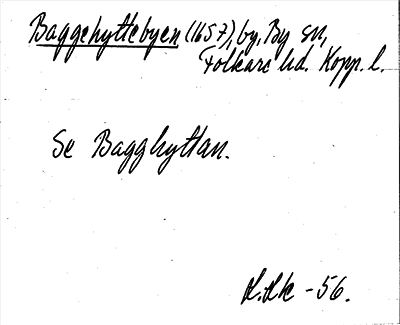 Baggehyttebyen (1657), by, By sn,
Folkare hd. Kopp. l.
Se Bagghyttan.
-56.